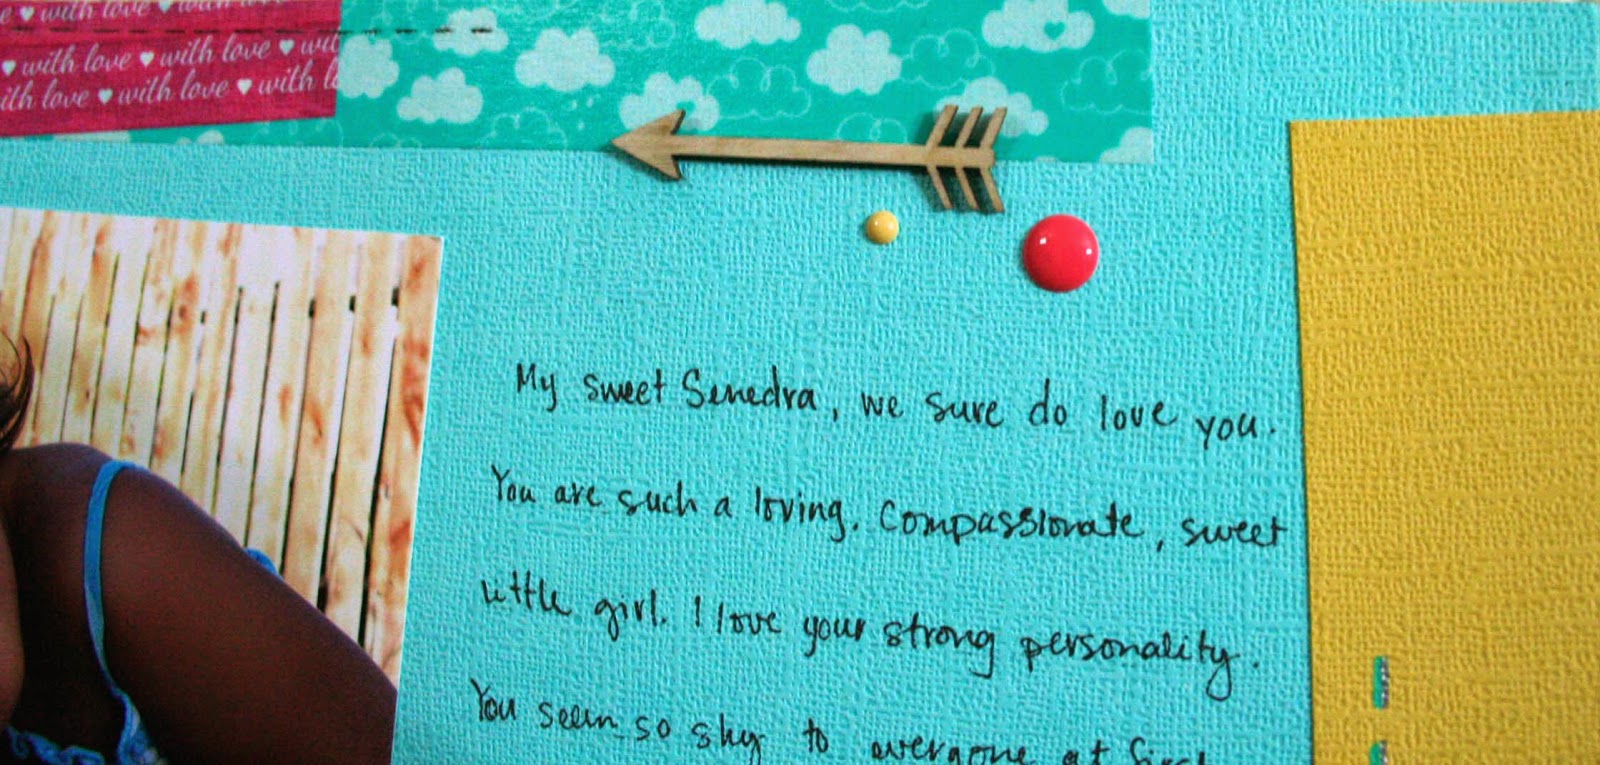 e ♥ with love ♥ with love ♥ with love
♥ with love ♥ with love ♥ wit
ith love ♥ with love ♥ with l
My sweet Senedra, we sure do love you.
You are such a loving. Compassionate, sweet
little girl. I love your strong personality.
You seem so shy to everyone at first